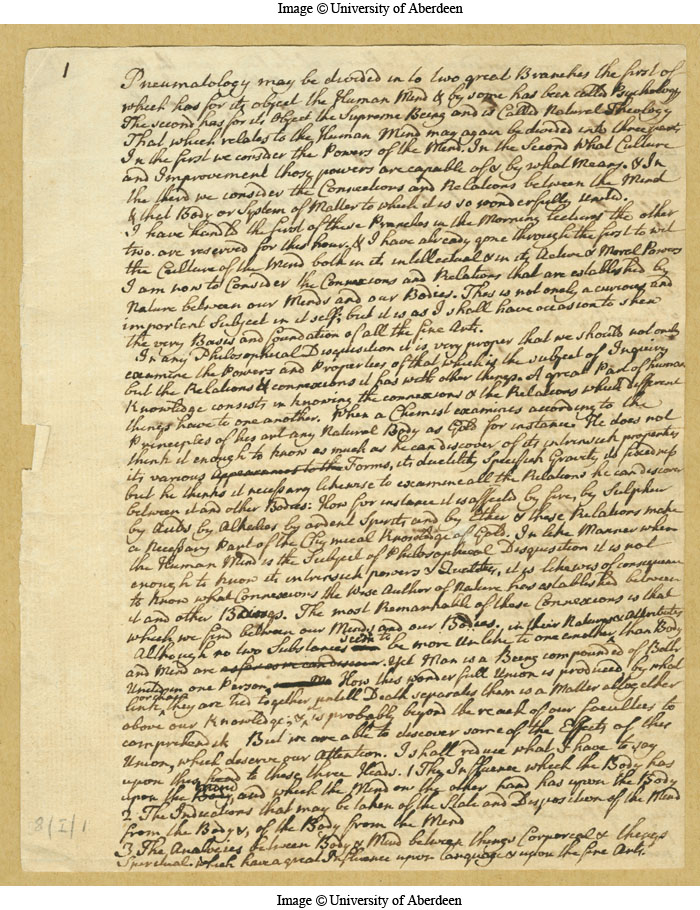 Image © University of Aberdeen
1
Pneumatology may be divided in to two great Branches the first of
which has for its object the Human Mind & by some has been called Psychology
The second has for its Object the Supreme Being and is Called Natural Theology
That which relates to the Human Mind may again be divided into three parts
In the first we consider the Powers of the Mind. In the Second What Culture
and Improvement those powers are capable of & by what Means. & In
the third we consider the Connections and Relations between the Mind
& that Body or System of Matter to which it is so wonderfully United.
I have handled the first of these Branches in the Morning lectures the other
two are reserved for this hour, & I have already gone through the first to wit
the Culture of the Mind both in its intellectual & in its Active & Moral Powers
I am now to Consider the Connexions and Relations that are established by
Nature between our Minds and our Bodies. This is not onely a curious and
important Subject in it self; but it is as I shall have occasion to shew
the very Basis and foundation of all the fine Arts.
In any Philosophical Disquisition it is very proper that we should not onely
examine the Powers and Properties of that which is the Subject of Inquiry
but the Relations & connexions it has with other things. A great Part of human
Knowledge consists in knowing the connexions & the Relations which different
things have to one another. When a Chemist examines according to the
Principles of his art any Natural Body as Gold for instance. He does not
think it enough to know as much as he can discover of its intrinsick properties
its various Appearances to the Forms, its ductility, Specifick Gravity, its fixedness
but he thinks it necessary likewise to examine all the Relations he can discover
between it and other Bodies: How for instance it is affected by fire, by Sulphur
by Acids by Alkalies by ardent Spirits and by other & these Relations make
a Necessary Part of the Chymical Knowledge of Gold. In like Manner when
the Human Mind is the Subject of Philosophical Disquisition it is not
enough to know its intrinsick powers & Qualities, it is likewise of consequence
to know what Connexions the Wise Author of Nature has established between
it and other Beings. The most Remarkable of these Connexions is that
which we find between our Minds and our Bodies. in their Nature & Attributes
Although no two Substances seem to be more Unlike to one another, than Body
and Mind are as far as we can discover. Yet Man is a Being compounded of Both
United in one Person. How this wonderfull Union is produced, by what
link or chain they are tied together, untill Death separates them is a Matter altogether
above our Knowledge, & is probably beyond the reach of our faculties to
comprehend. But we are able to discover some of the Effects of this
Union, which deserve our Attention. I shall reduce what I have to say
upon this head to these three Heads. 1 The Influence which the Body has
upon the Body Mind, and which the Mind on the other hand has upon the Body
2 The Indications that may be taken of the State and Disposition of the Mind
from the Body &, of the Body from the Mind
3 The Analogies between Body & Mind between things Corporeal & things
Spiritual. which have a great Influence upon Language & upon the fine Arts.
8/I/1
Image © University of Aberdeen